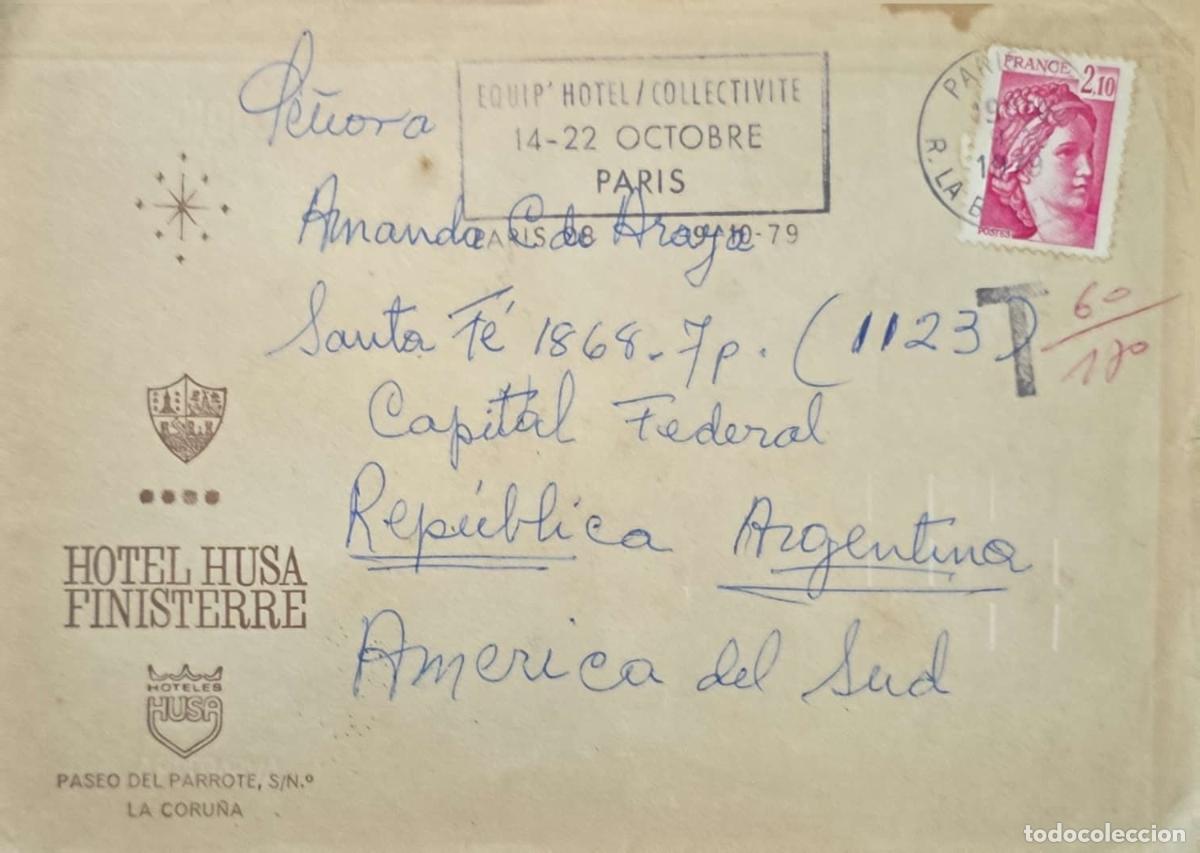 Señora
EQUIP' HOTEL / COLLECTIVITE
14-22 OCTOBRE
PARIS
FRANCE
2,10
POSTES
PARIS
R. LA B
Amanda C. de Araya
PARIS 08 -10-79
Santa Fé 1868-7p. (1123)
T
60
Capital Federal
República Argentina
America del Sud
HOTEL HUSA
FINISTERRE
HOTELES
HUSA
PASEO DEL PARROTE, S/N.º
LA CORUÑA
todocoleccion